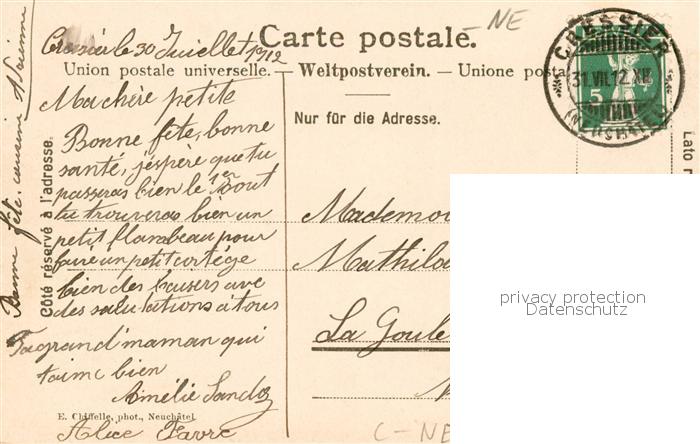 Carte postale.
NE
Cressier le 30 Juillet 1912
Union postale universelle. — Weltpostverein. — Unione posta
CRESSIER
31.VII.12.XII
(NEUCHATEL)
5
Ma chère petite
Nur für die Adresse.
Côté réservé à l'adresse.
Lato r
Bonne fête, bonne
santé, j'éspère que tu
passeras bien le 1er Aout
tu trouveras bien un
petit flambeau pour
faire un petit cortége
bien des baisers ave
des salutations à tous
Ta grand'maman qui
t'aime bien
Amélie Sandoz
Alice Favre
Bonne fête. cousine
Mademoi
Mathild
La Goule
E. Chiffelle, phot., Neuchâtel
C-NE
privacy protection
Datenschutz